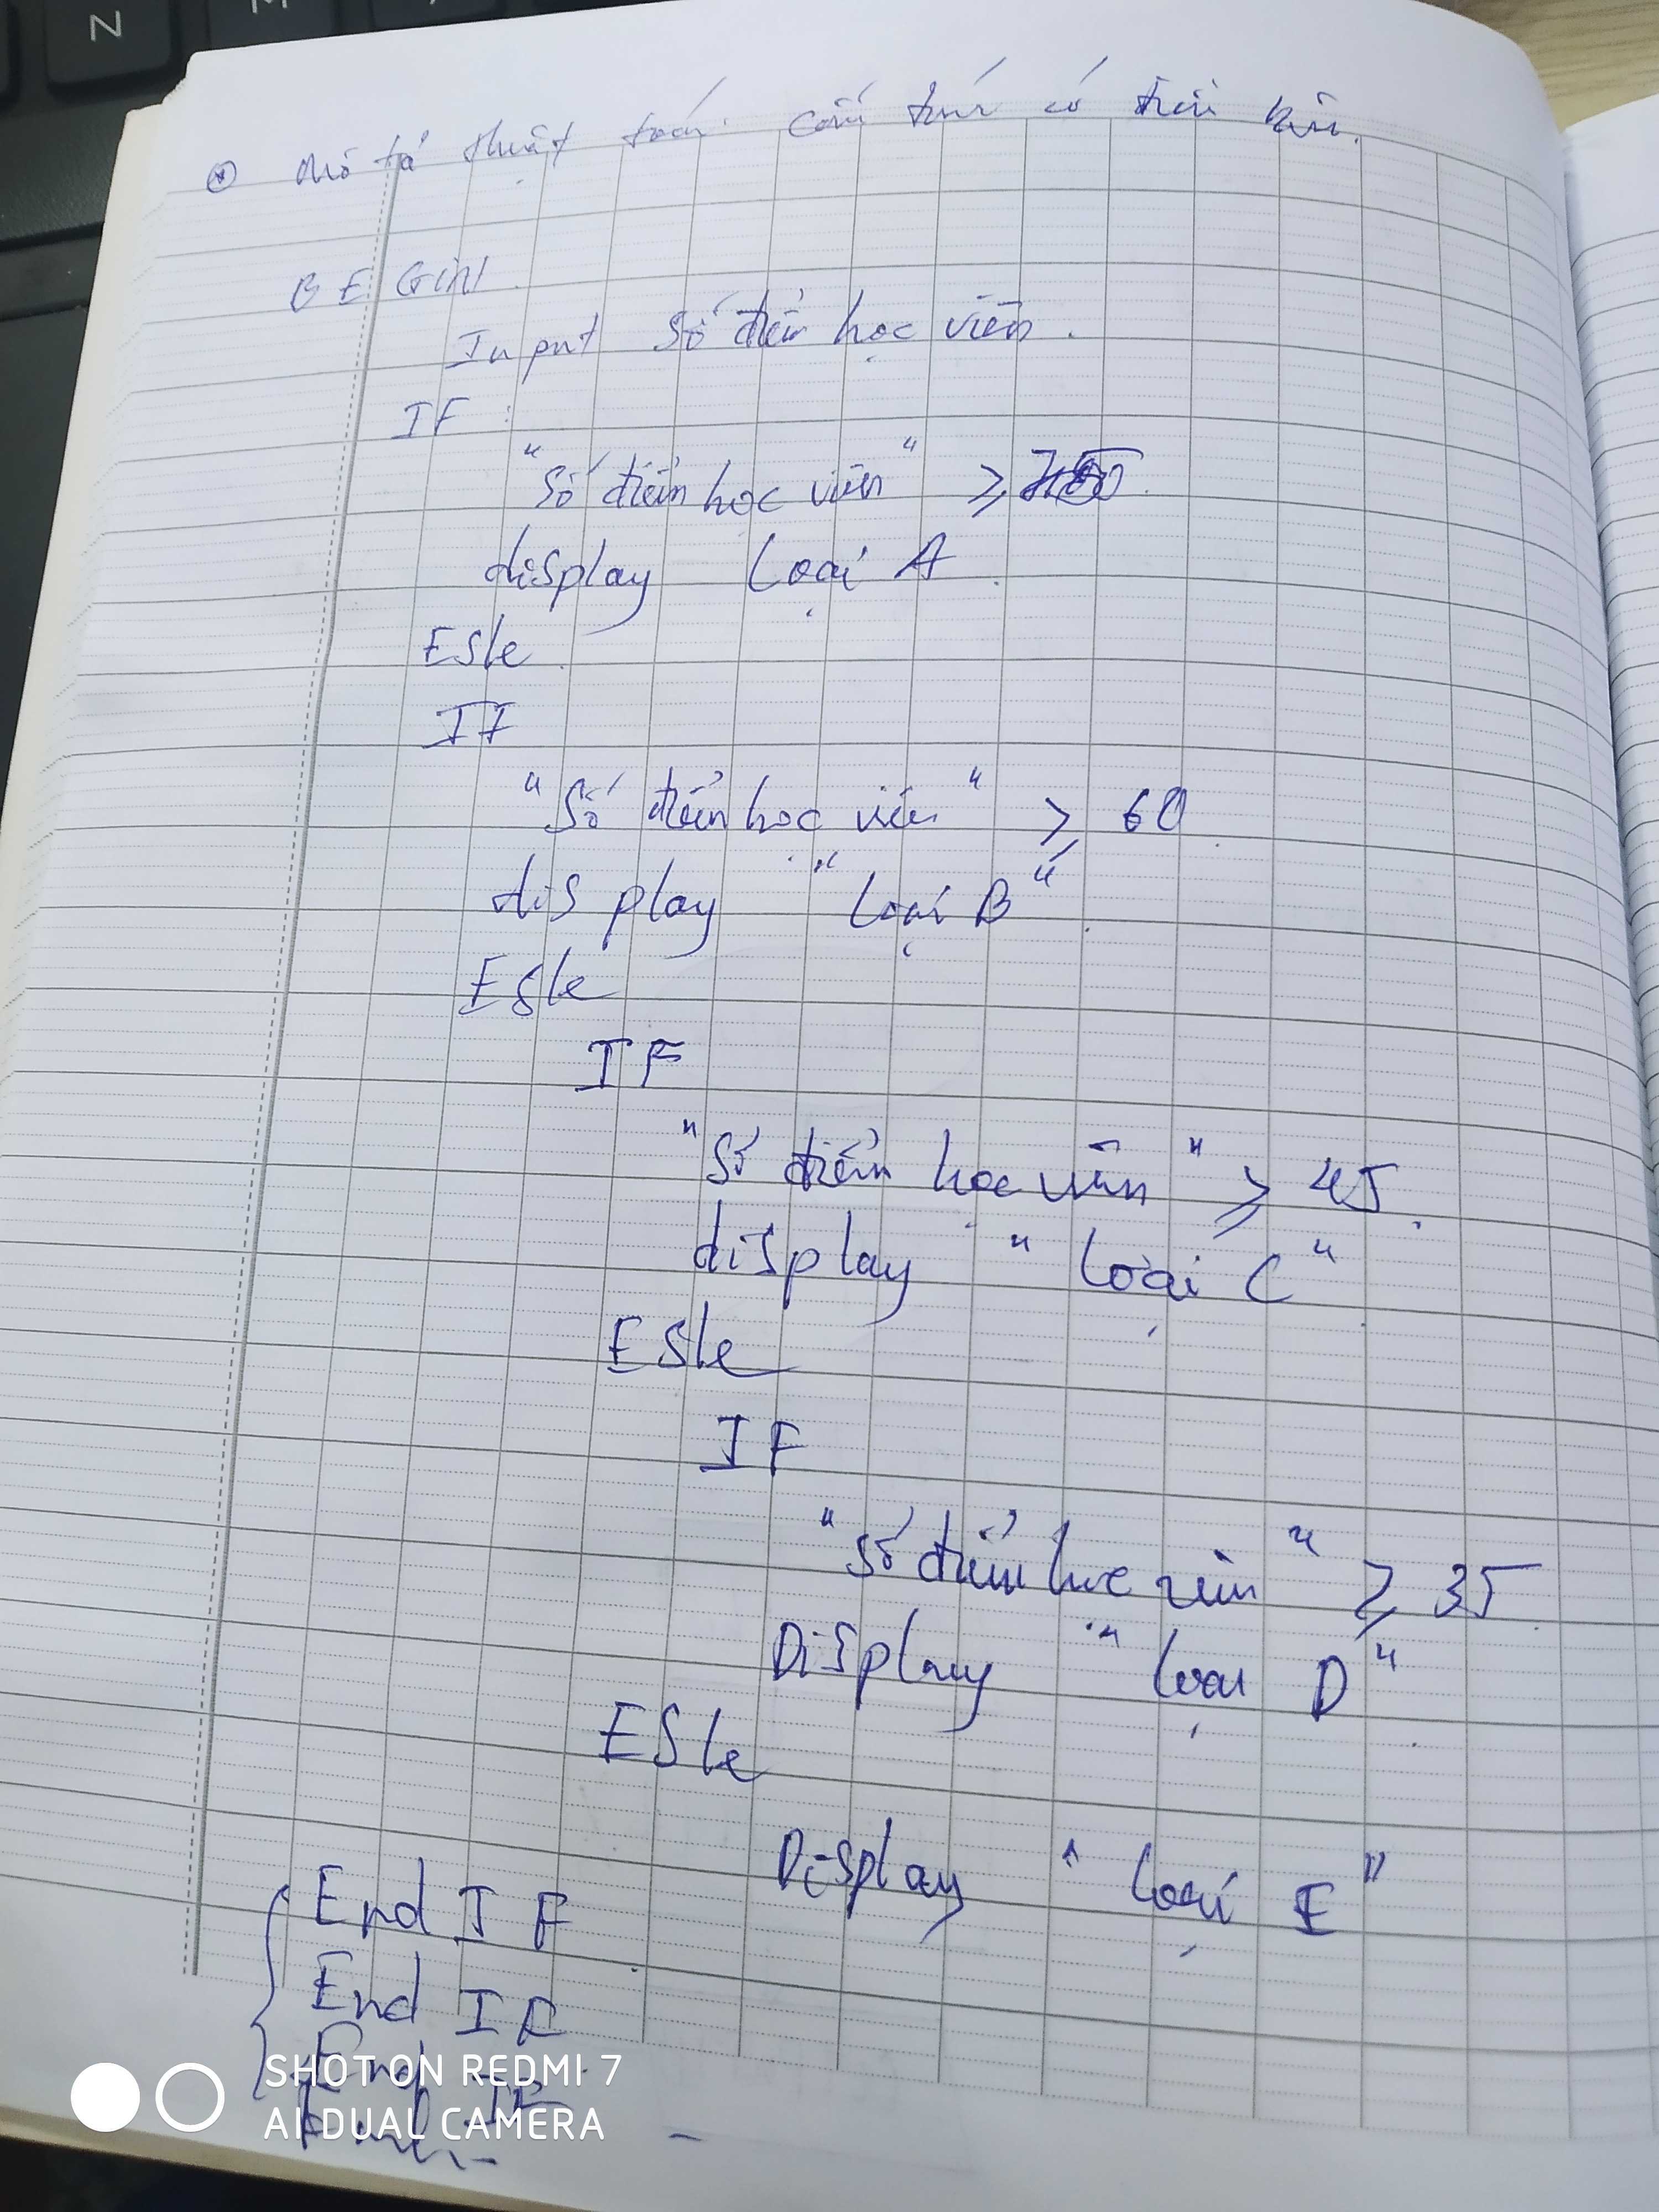 N
Mô tả thuật toán cấu trúc có điều kiện.
BEGIN
Input Số điểm học viên.
IF :
"Số điểm học viên" ≥
display Loại A
Esle
IF
"Số điểm học viên" ≥ 60
display "Loại B"
Esle
IF
"Số điểm học viên" ≥ 45
display "Loại C"
Esle
IF
"Số điểm học viên" ≥ 35
Display "Loại D"
Esle
Display "Loại E"
End IF
End IF
End IF
SHOT ON REDMI 7
AI DUAL CAMERA